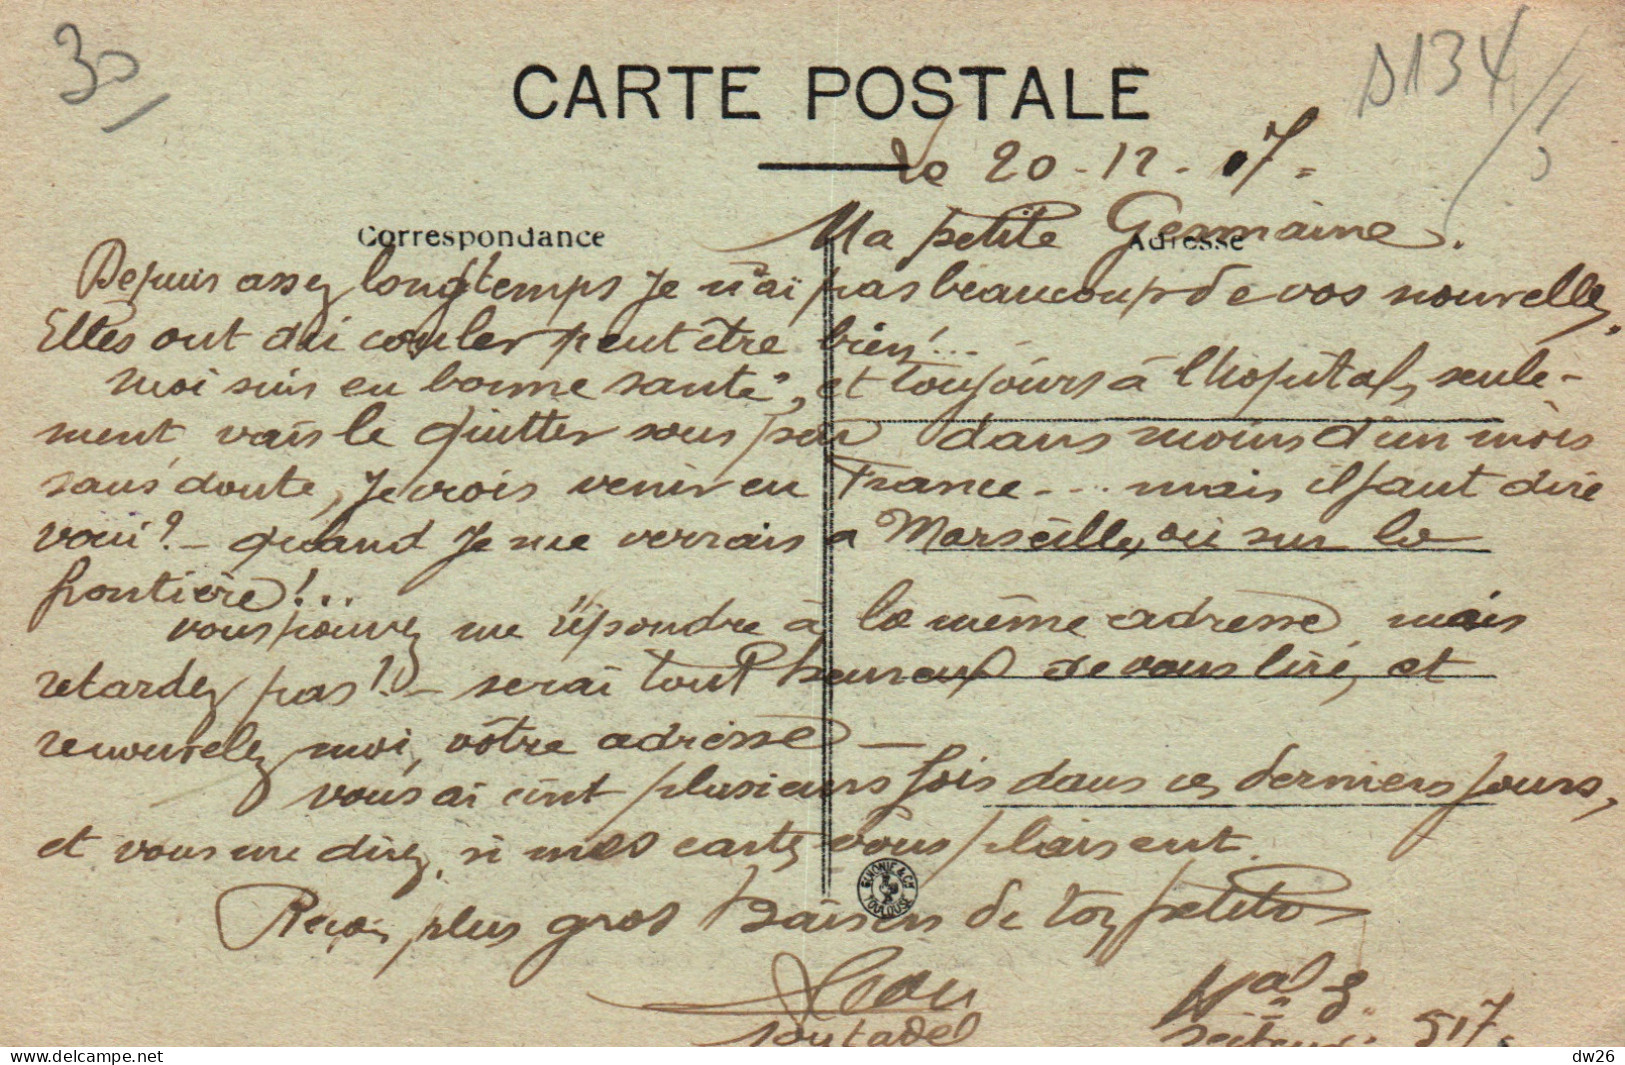 30
D134
CARTE POSTALE
le 20-12-17=
Correspondance
Adresse
Ma petite Germaine.
Depuis assez longtemps je n'ai pas beaucoup de vos nouvelles.
Elles ont dû couler peut être bien!...
Moi suis en bonne santé, et toujours à l'hopital, seule-
ment vais le quitter sous peu dans moins d'un mois
sans doute, je crois venir en France.... mais il faut dire
voui? - quand je me verrais a Marseille, ou sur la
frontière!...
vous pouvez me répondre à la même adresse, mais
retardez pas!! - serai tout heureux de vous lire, et
renouvelez moi, vôtre adresse -
vous ai écrit plusieurs fois dans ces derniers jours,
et vous me direz, si mes cartes vous plaisent.
Reçois plus gros baisers de ton petito
LABOUCHE & Cie TOULOUSE
Secteur 517.
dw26